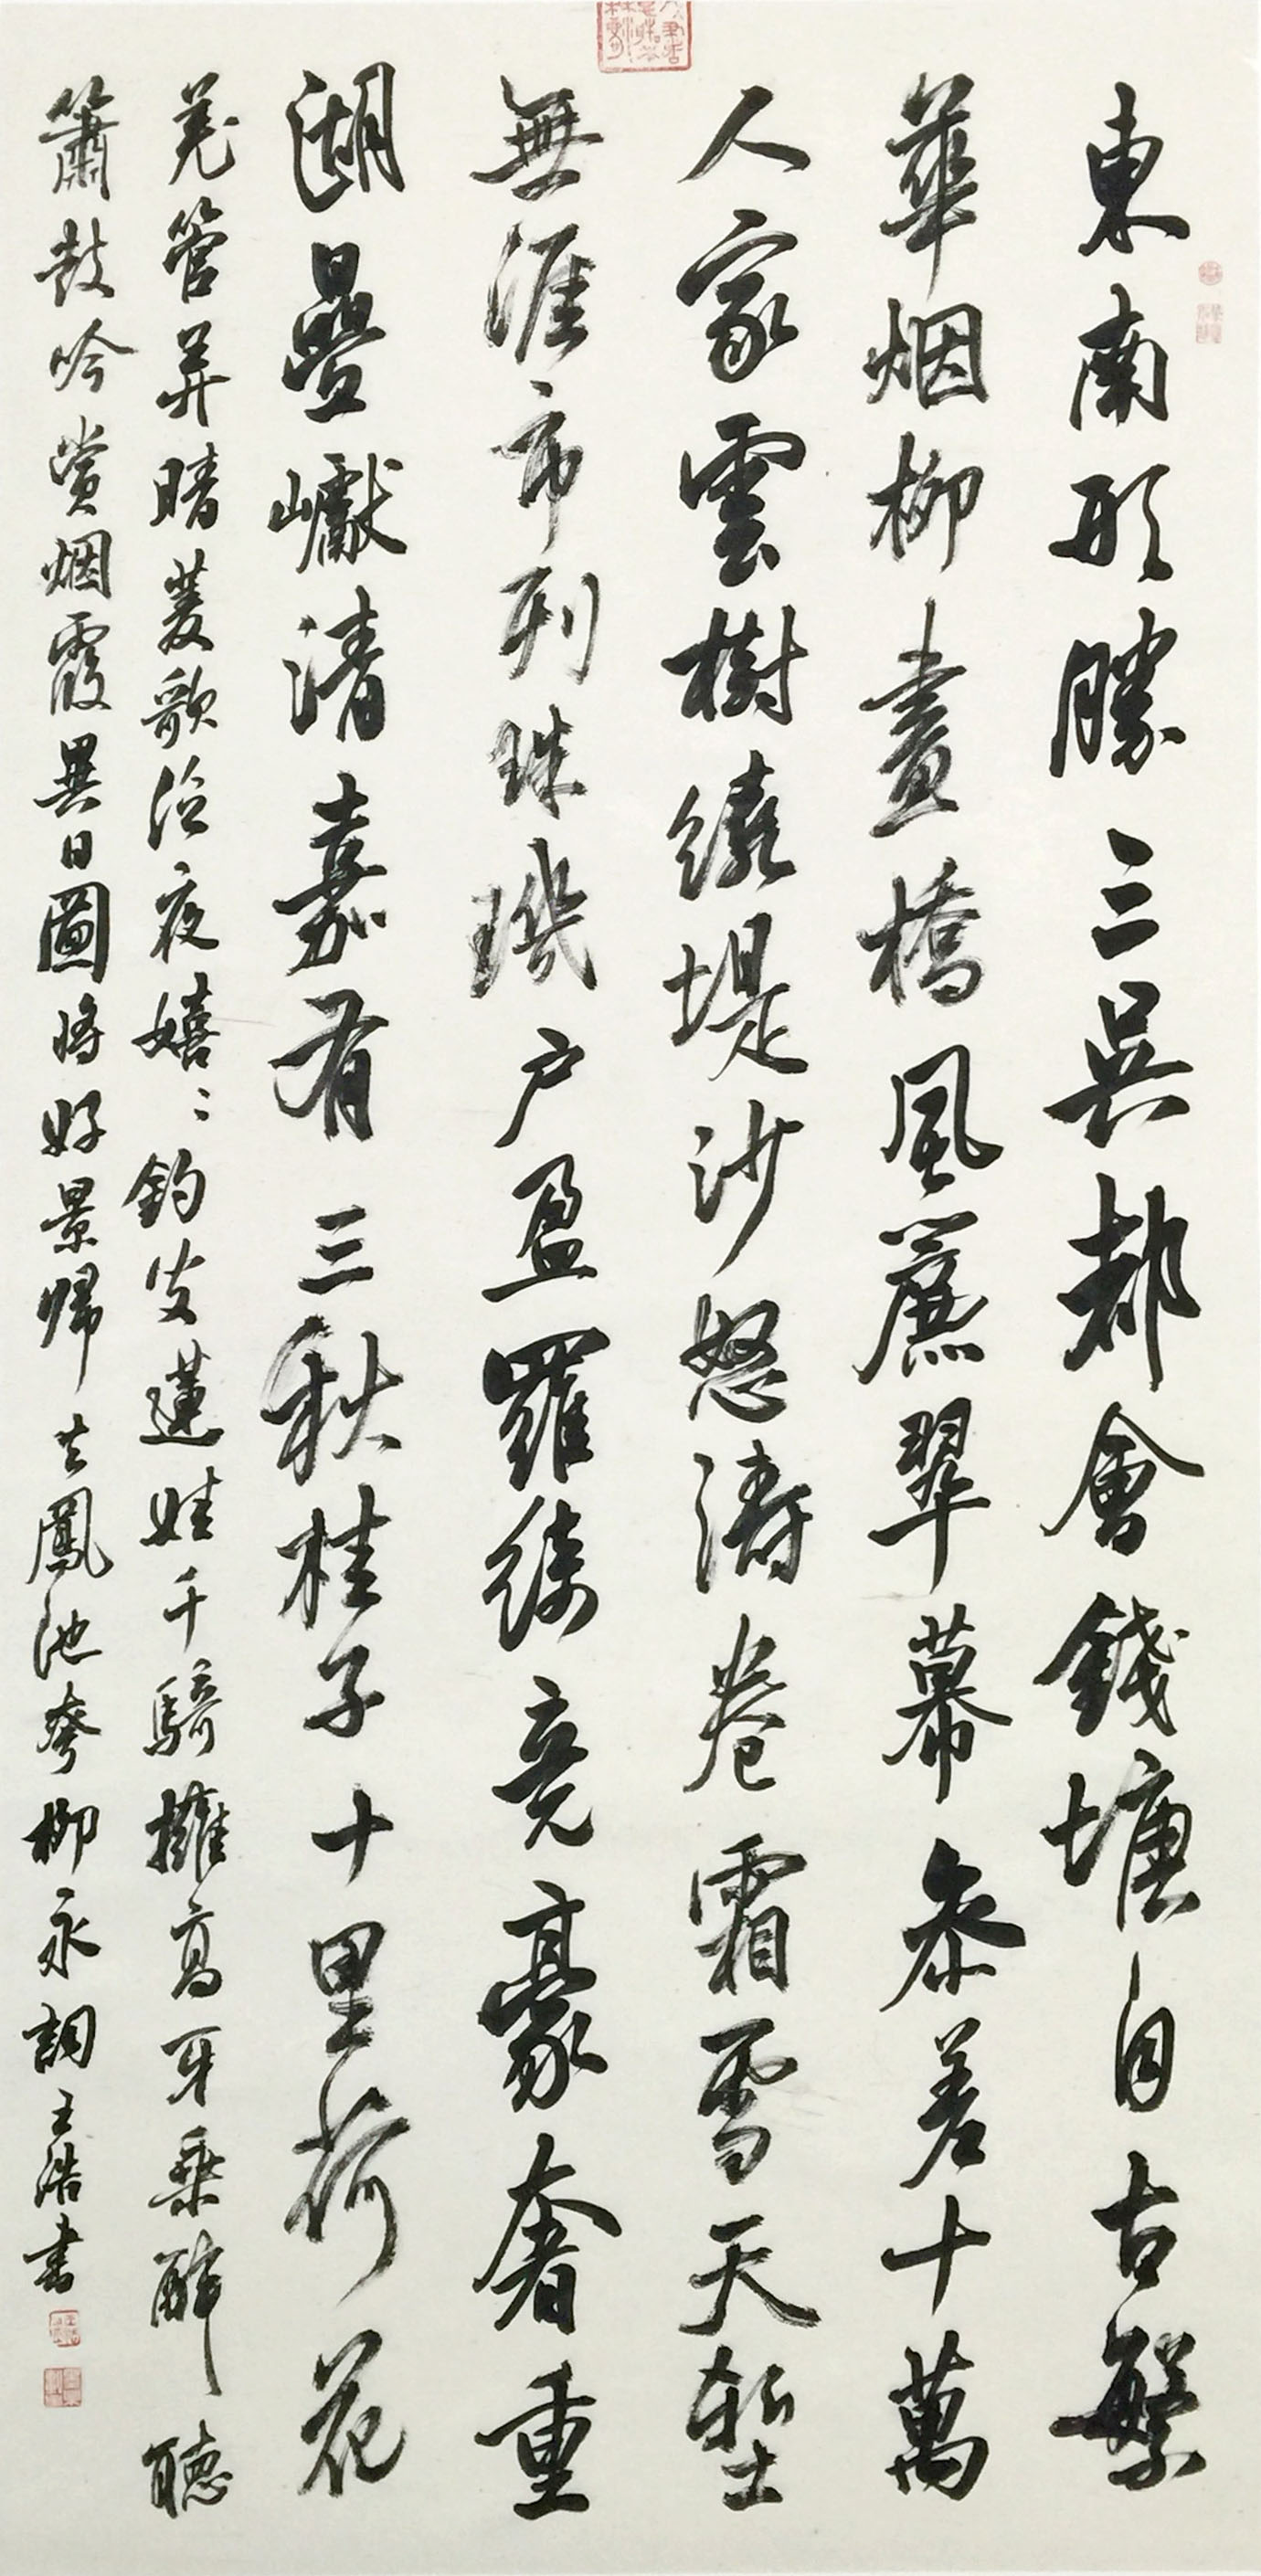 東南形勝三吳都會錢塘自古繁
華烟柳畫橋風簾翠幕參差十萬
人家雲樹繞堤沙怒濤卷霜雪天塹
無涯市列珠璣户盈羅綺競豪奢重
湖疊巘清嘉有三秋桂子十里荷花
羌管弄晴菱歌泛夜嬉〻釣叟蓮娃千騎擁高牙乗醉聽
簫鼓吟赏烟霞異日圖將好景歸去鳳池夸柳永詞王浩書